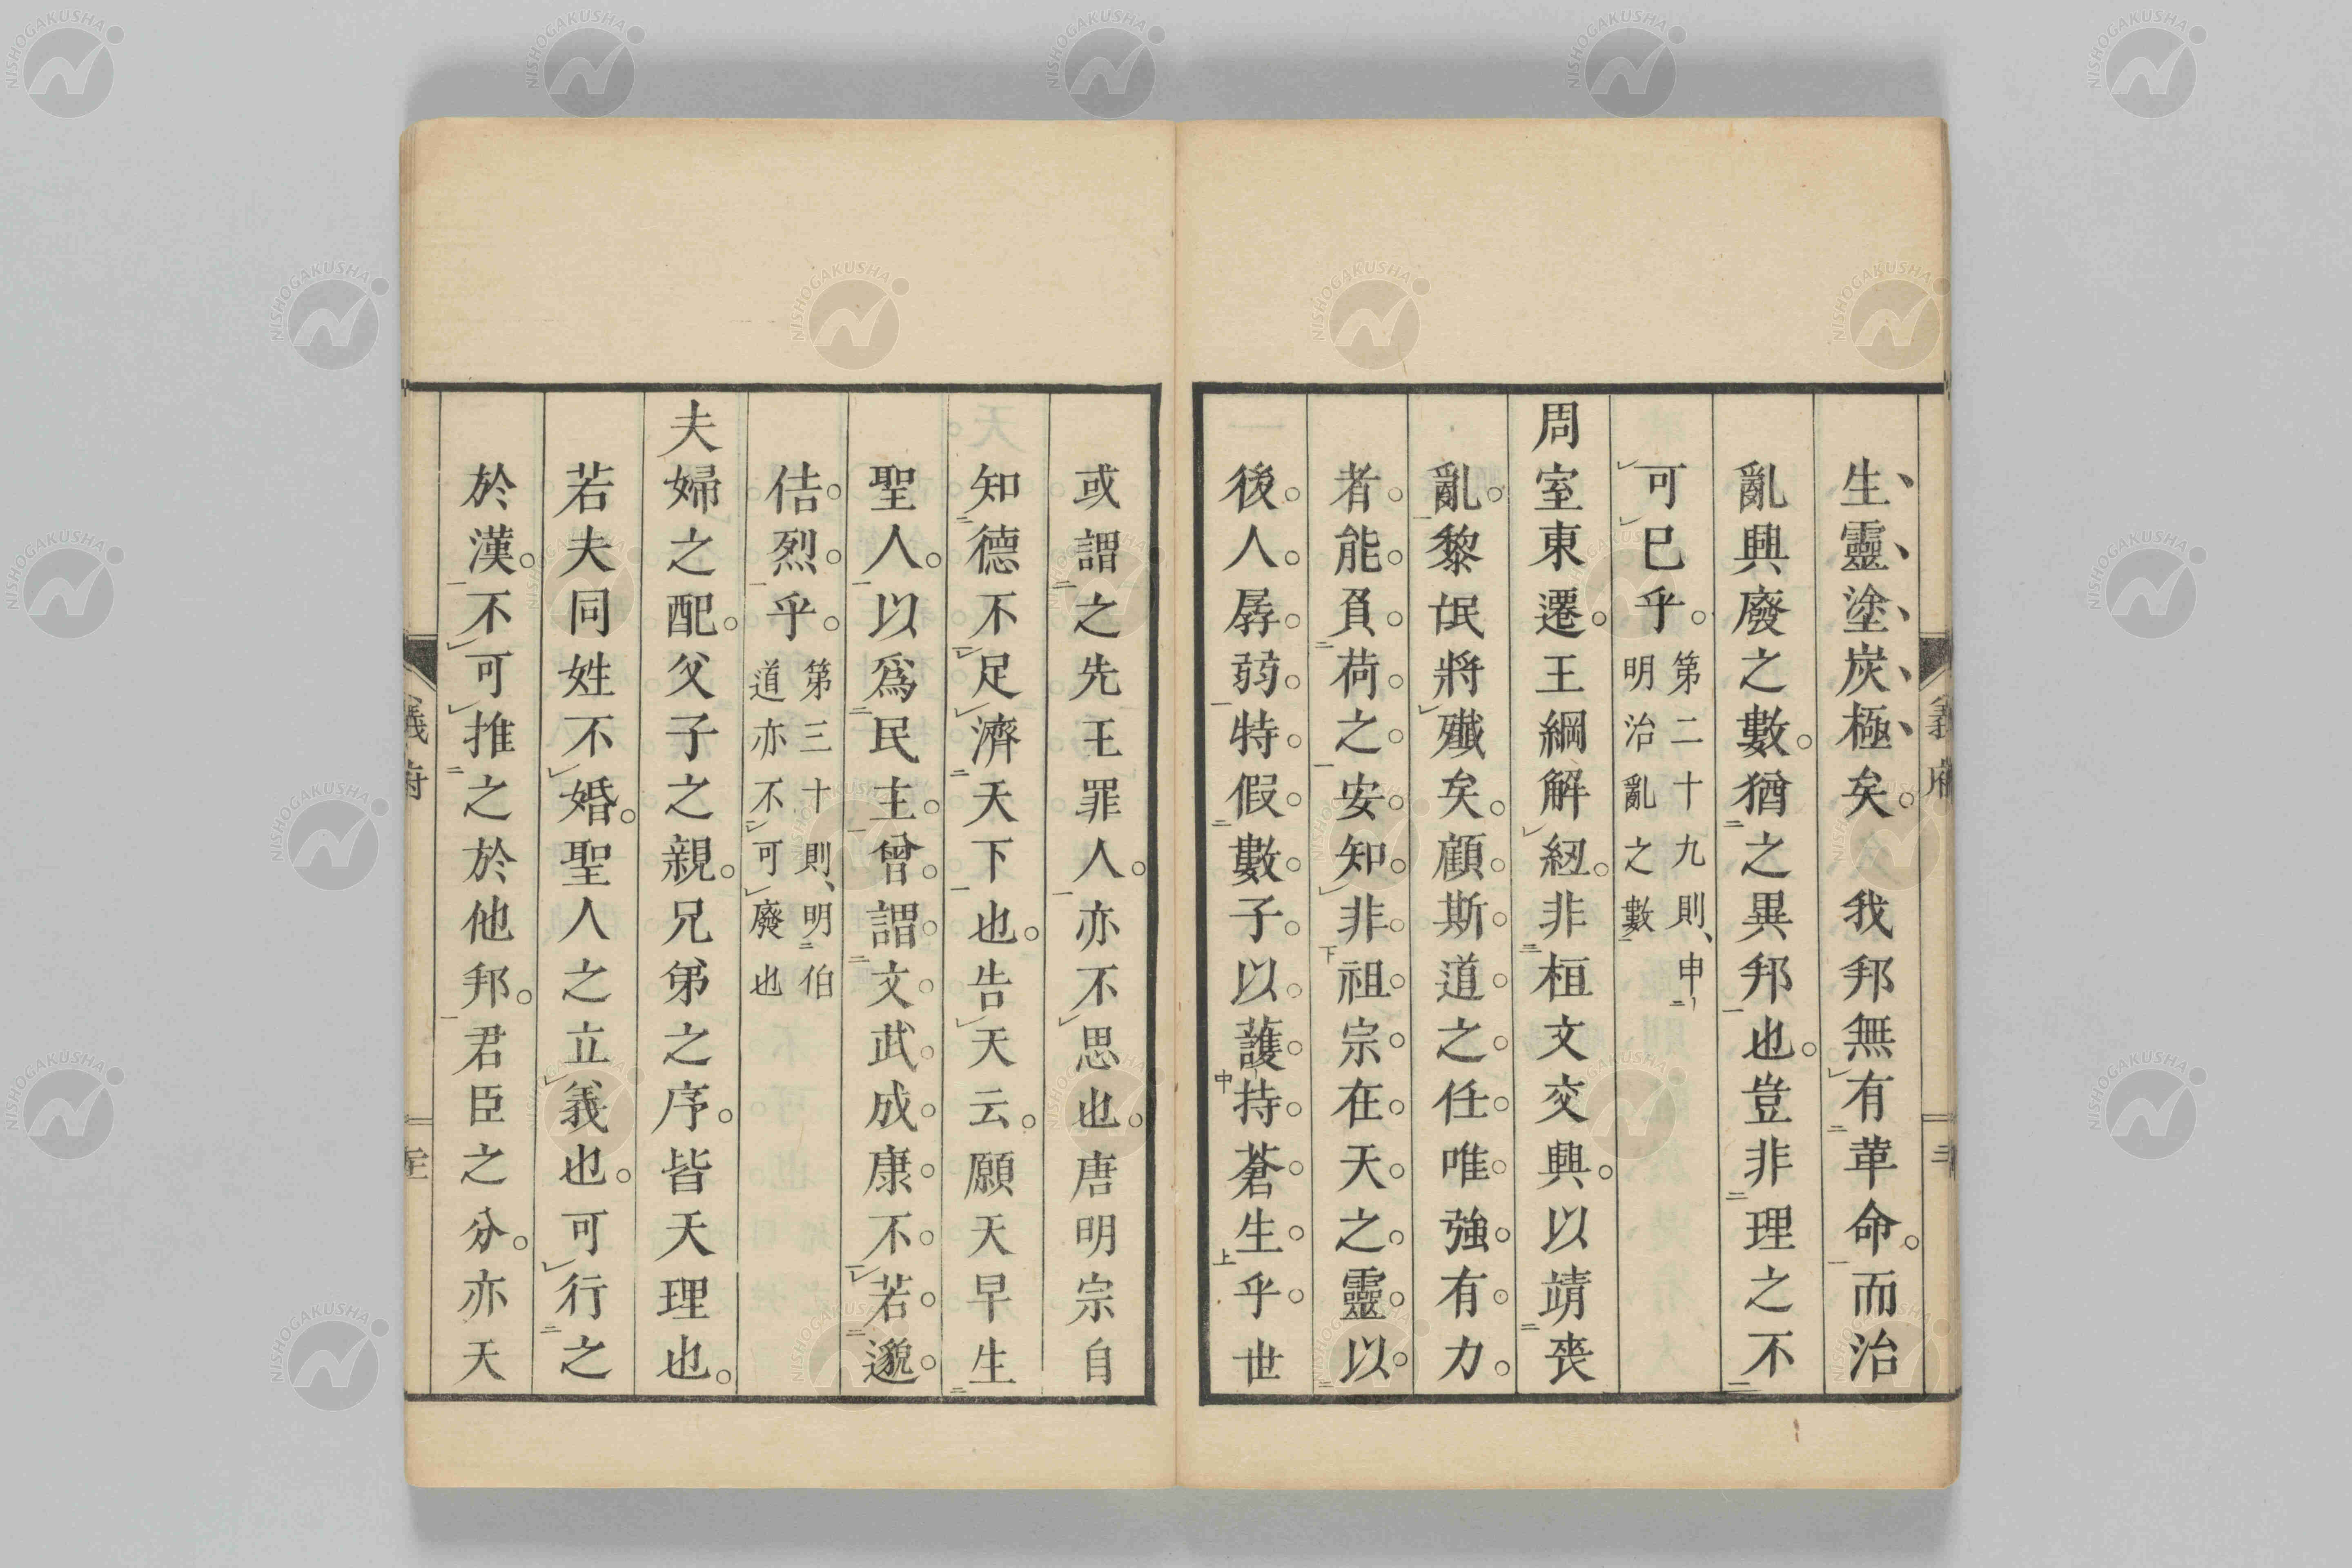 生靈塗炭極矣。我邦無有革命。而治
亂興廢之數。猶之異邦也。豈非理之不
可已乎。第二十九則、申
明治亂之數
周室東遷。王綱解紐。非桓文交興。以靖喪
亂。黎氓將殲矣。顧斯道之任唯強有力
者能負荷之。安知非祖宗在天之靈以
後人孱弱特假數子以護持蒼生乎世
或謂之先王罪人。亦不思也。唐明宗自
知德不足濟天下也。告天云。願天早生
聖人。以爲民主。曾謂文武成康不若邈
佶烈乎。第三十則、明伯
道亦不可廢也
夫婦之配。父子之親。兄弟之序。皆天理也。
若夫同姓不婚。聖人之立義也。可行之
於漢。不可推之於他邦。君臣之分。亦天
義府
NISHOGAKUSHA